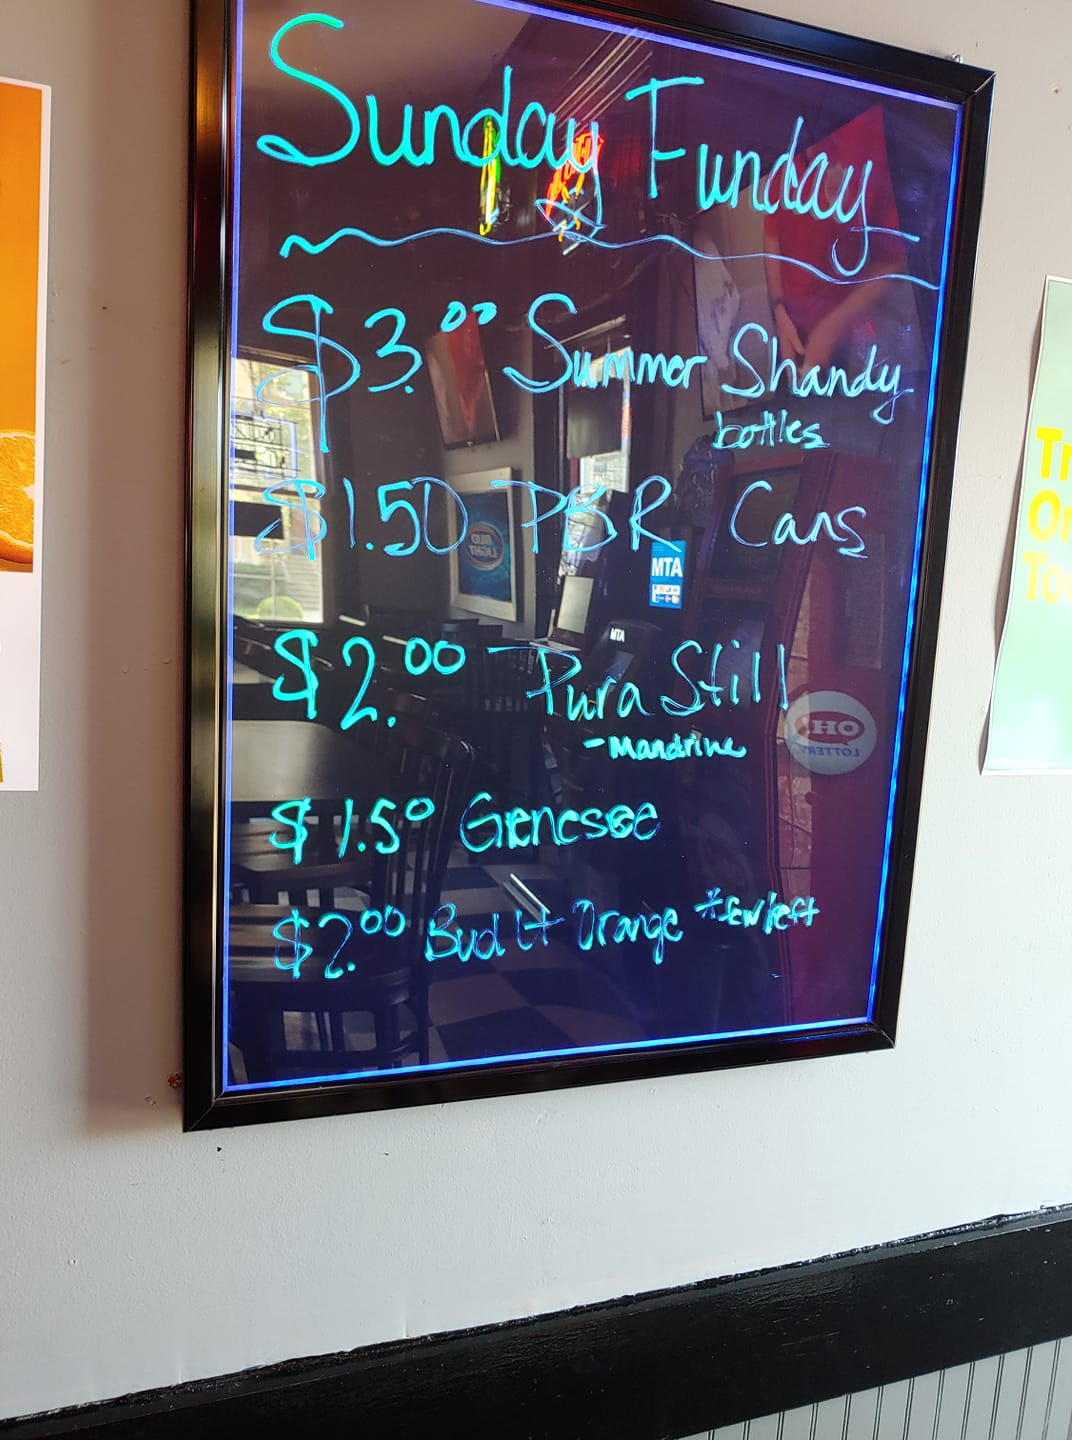 Sunday Funday
$3.00 Summer Shandy
bottles
$1.50 PBR Cans
$2.00 Pura Still
-Mandrine
$1.50 Genesee
$2.00 Bud Lt Orange *few left
BUD
LIGHT
MTA
MTA
OH!
LOTTERY